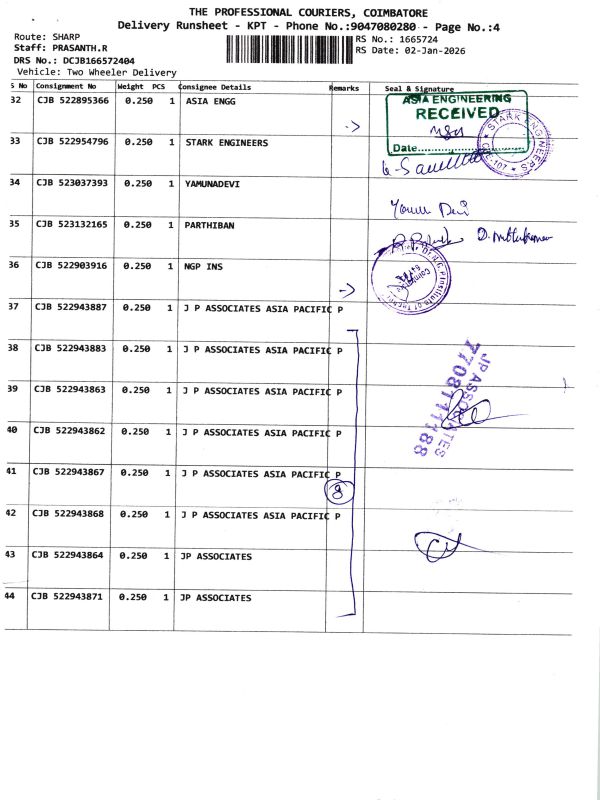 THE PROFESSIONAL COURIERS, COIMBATORE
Delivery Runsheet - KPT - Phone No.:9047080280 - Page No.:4
Route: SHARP
RS No.: 1665724
Staff: PRASANTH.R
RS Date: 02-Jan-2026
DRS No.: DCJB166572404
Vehicle: Two Wheeler Delivery
S No Consignment No Weight PCS Consignee Details Remarks Seal & Signature
32 CJB 522895366 0.250 1 ASIA ENGG
ASIA ENGINEERING
RECEIVED
Date
STARK ENGINEERS
33 CJB 522954796 0.250 1 STARK ENGINEERS
34 CJB 523037393 0.250 1 YAMUNADEVI
35 CJB 523132165 0.250 1 PARTHIBAN
36 CJB 522903916 0.250 1 NGP INS
37 CJB 522943887 0.250 1 J P ASSOCIATES ASIA PACIFIC P
38 CJB 522943883 0.250 1 J P ASSOCIATES ASIA PACIFIC P
39 CJB 522943863 0.250 1 J P ASSOCIATES ASIA PACIFIC P
JP ASSOCIATES
7708111188
40 CJB 522943862 0.250 1 J P ASSOCIATES ASIA PACIFIC P
41 CJB 522943867 0.250 1 J P ASSOCIATES ASIA PACIFIC P
8
42 CJB 522943868 0.250 1 J P ASSOCIATES ASIA PACIFIC P
43 CJB 522943864 0.250 1 JP ASSOCIATES
44 CJB 522943871 0.250 1 JP ASSOCIATES